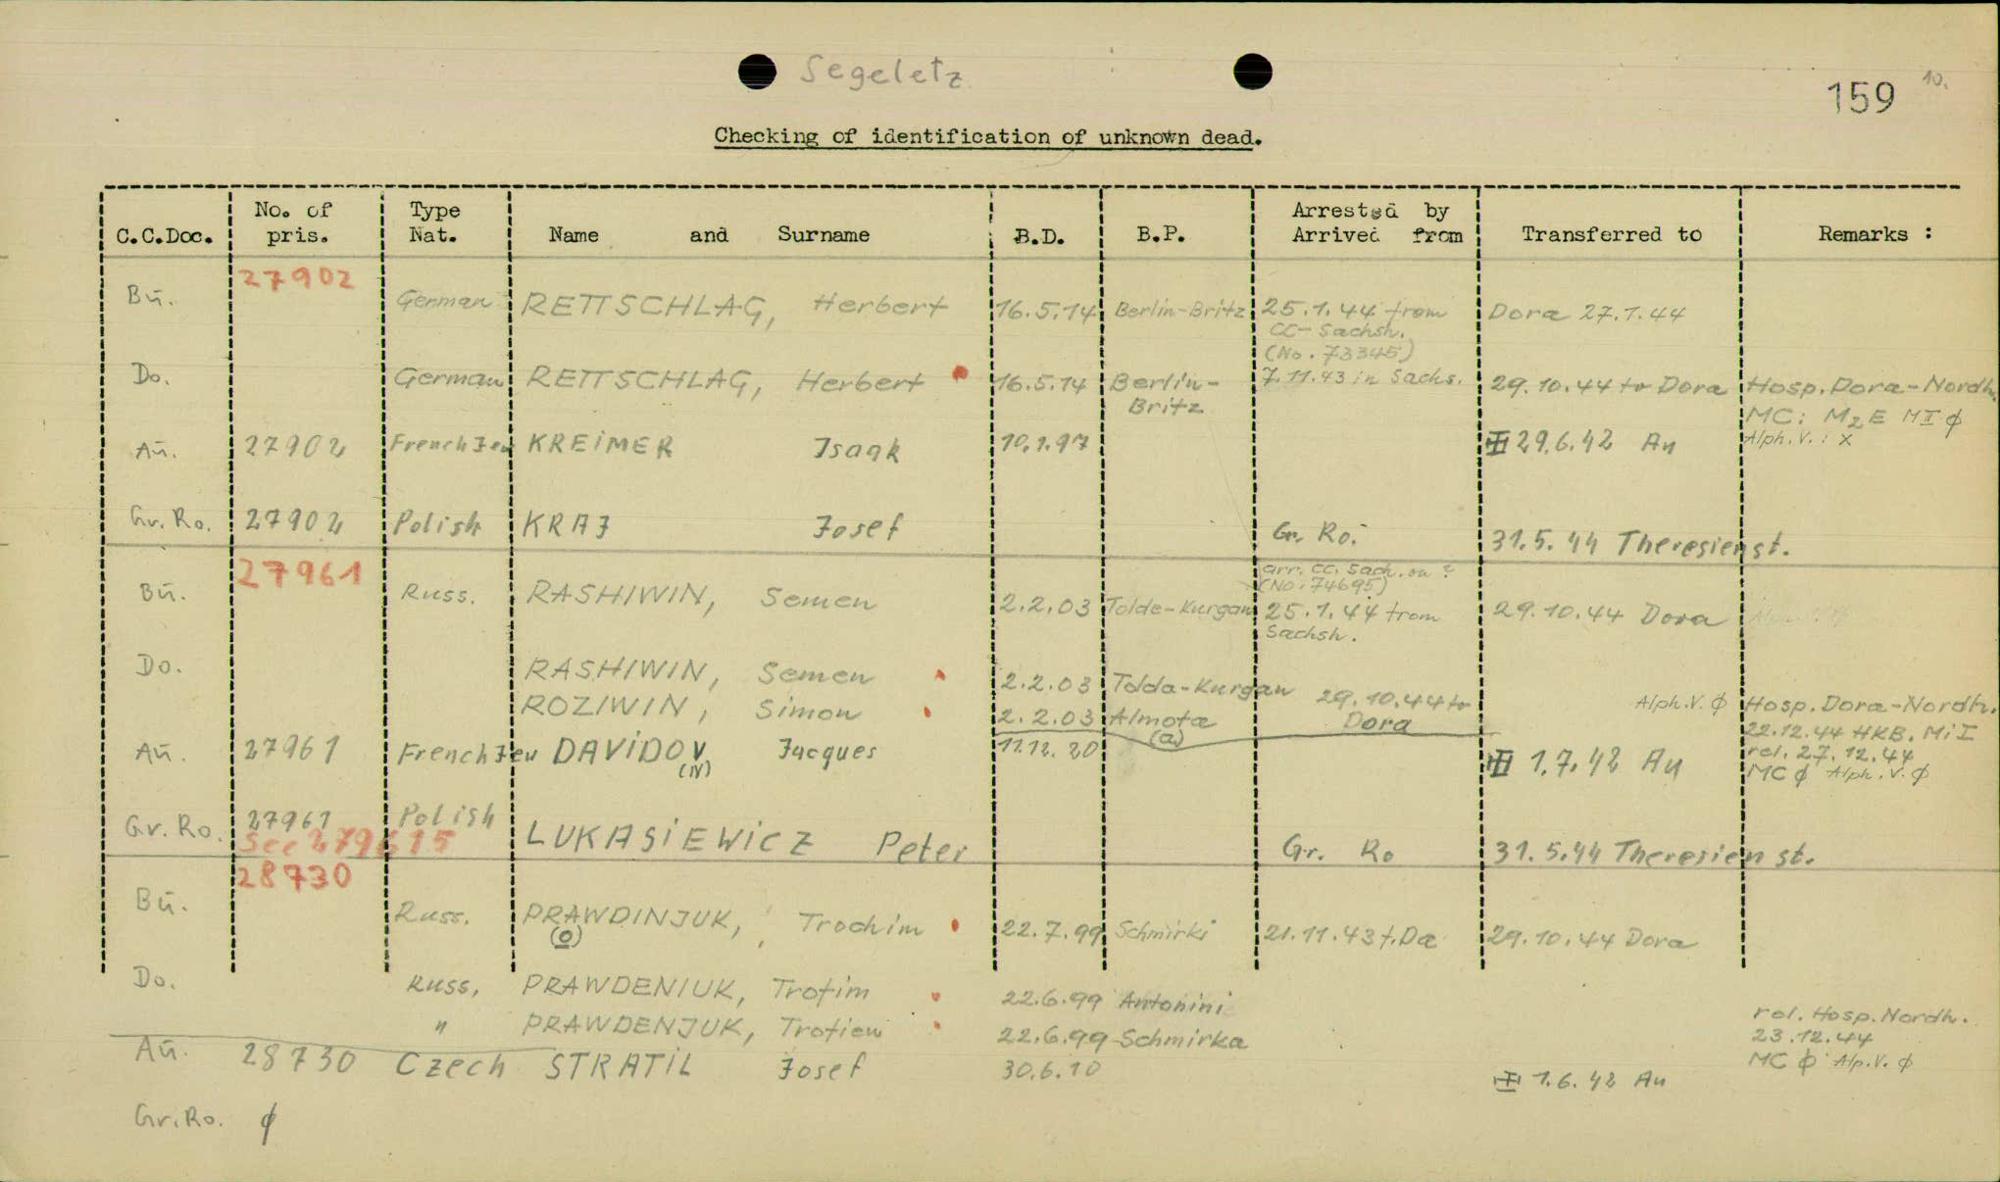 Segeletz
159 10.
Checking of identification of unknown dead.
C.C.Doc. No. of pris. Type Nat. Name and Surname B.D. B.P. Arrested by Arrived from Transferred to Remarks :
27902
Bü. German RETTSCHLAG, Herbert 16.5.14 Berlin-Britz 25.1.44 from Dora 27.1.44
CC-Sachsh.
(No. 73345)
Do. German RETTSCHLAG, Herbert 16.5.14 Berlin- 7.11.43 in Sachs. 29.10.44 to Dora Hosp. Dora-Nordh.
Britz MC: M2E MI ϕ
Au. 27902 French Jew KREIMER Isaak 10.1.97 29.6.42 Au Alph.V.: x
Gr. Ro. 27902 Polish KRAJ Josef Gr. Ro. 31.5.44 Theresienst.
27961 arr. CC. Sach. on ?
(No. 74695)
Bü. Russ. RASHIWIN, Semen 2.2.03 Tolde-Kurgan 25.1.44 from 29.10.44 Dora
Sachsh.
Do. RASHIWIN, Semen 2.2.03 Tolda-Kurgan 29.10.44 to Alph.V. ϕ Hosp. Dora-Nordh.
ROZIWIN, Simon 2.2.03 Almota Dora 22.12.44 HKB. Mi I
(a)
Au. 27961 French Jew DAVIDOV Jacques 11.12.20 1.7.42 Au rel. 27.12.44
(IV) MC ϕ Alph.V. ϕ
Gr. Ro. 27961 Polish LUKASIEWICZ Peter Gr. Ro 31.5.44 Theresienst.
See 279615
28730
Bü. Russ. PRAWDINJUK, Trochim 22.7.99 Schmirki 21.11.43 f.Da 29.10.44 Dora
(o)
Do. Russ. PRAWDENIUK, Trofim 22.6.99 Antonini rel. Hosp. Nordh.
" PRAWDENJUK, Trofiem 22.6.99 Schmirka 23.12.44
Au. 28730 Czech STRATIL Josef 30.6.10 1.6.42 Au MC ϕ Alp.V. ϕ
Gr. Ro. ϕ